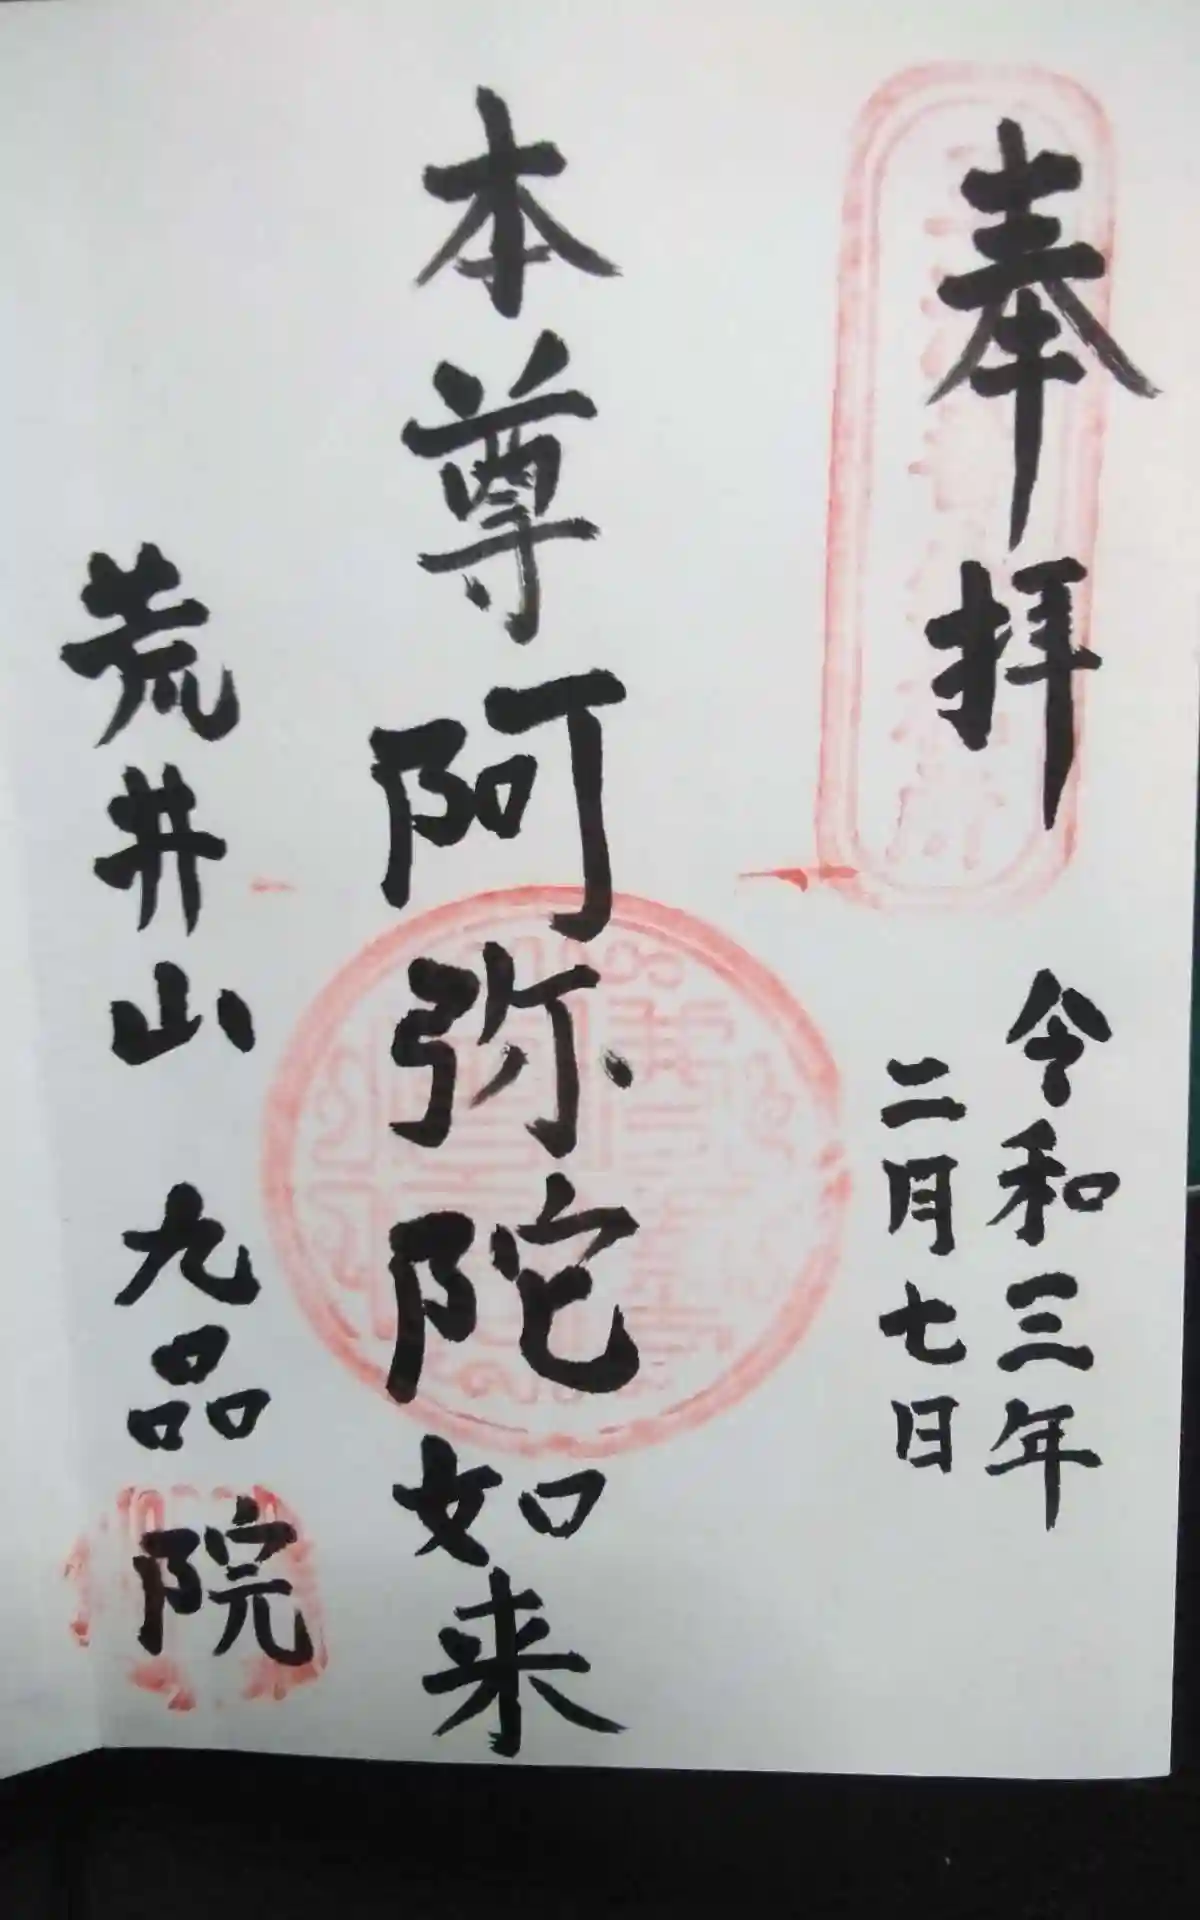 奉拝
令和三年
二月七日
本尊阿弥陀如来
荒井山 九品院